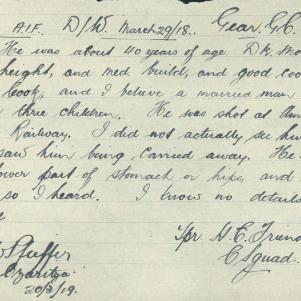 A.I.F. D/W. March 29/18. Gear. G.C.
He was about 40 years of age. Dk. Mo
height, and med. build, and good loo
look, and I believe a married man
three children. He was shot at Am
Railway. I did not actually see hi
saw him being carried away. He
ower part of stomach or hips, and
so I heard. I know no details
Spr. H. C.
Pfeiffer C Squad.
20/3/19.